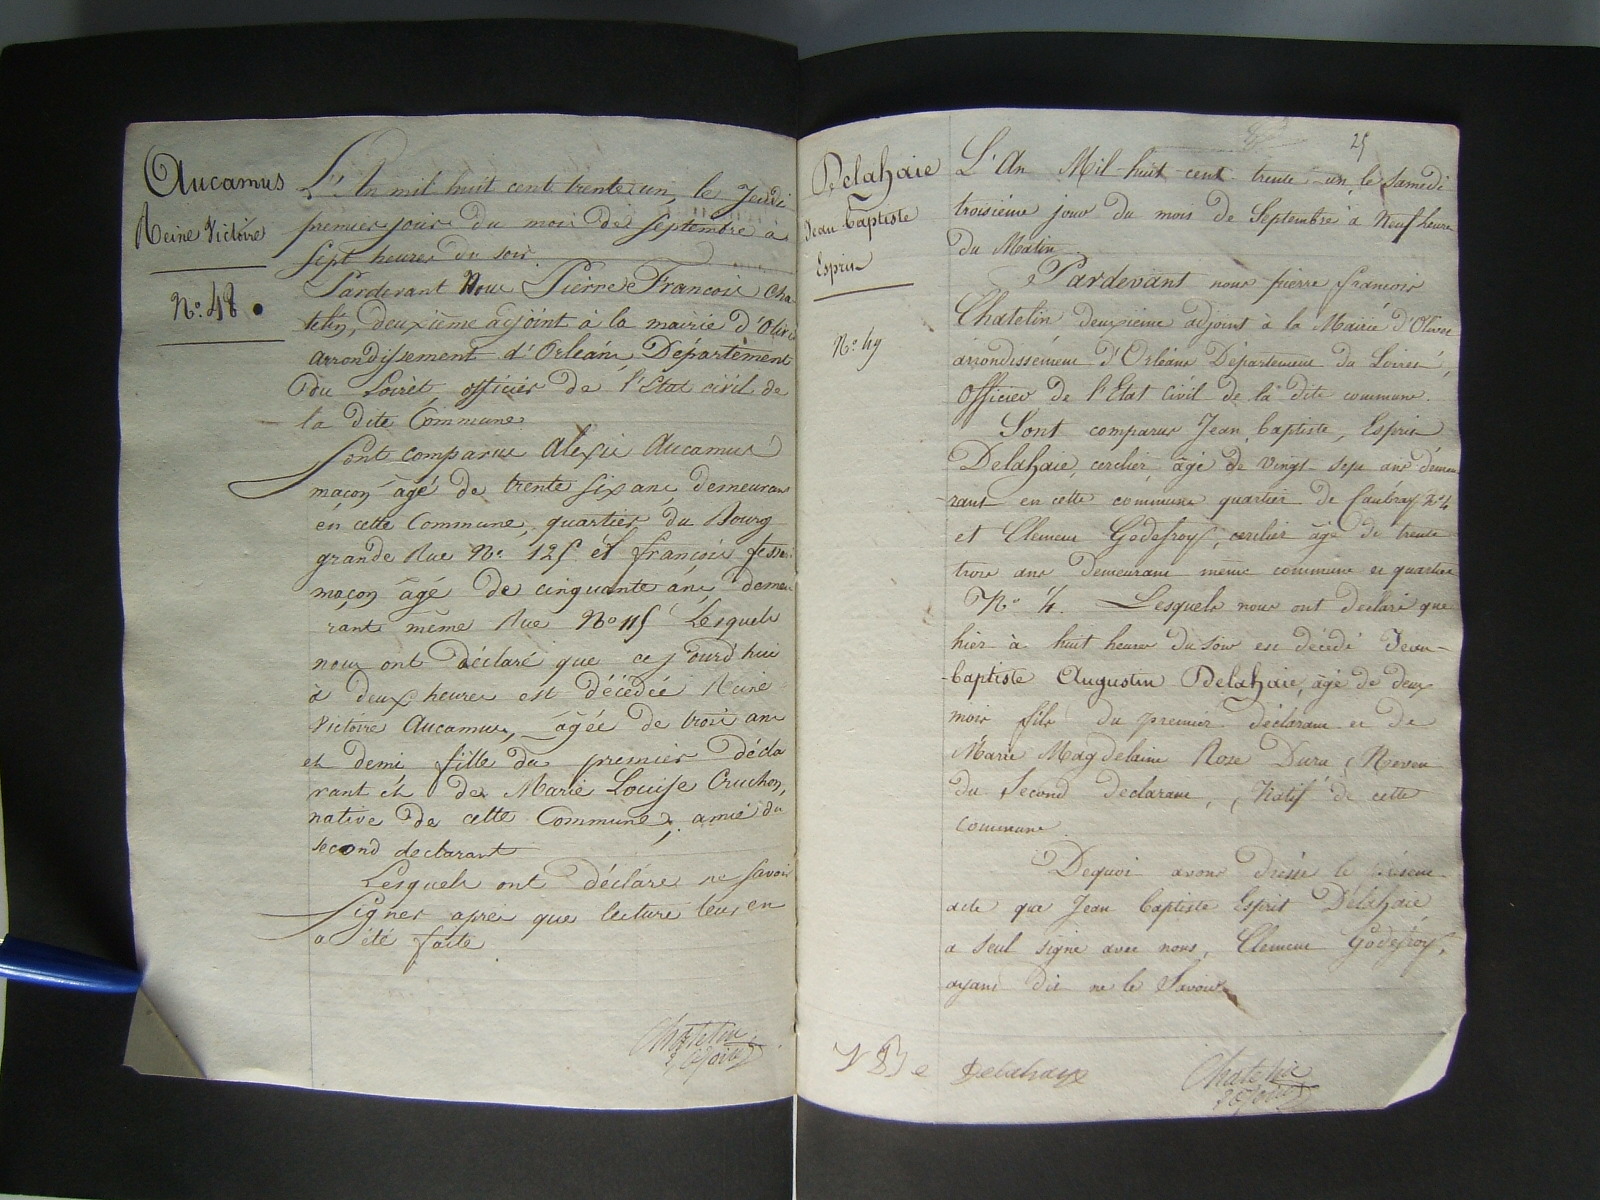 Aucamus
Reine Victoire
N.º 48
L'An mil huit cent trente un, le Jeudi
premier jour du mois de Septembre a
Sept heures du soir
Pardevant Nous Pierre François Cha-
telin, deuxième adjoint à la mairie d'Olivet
arrondissement d'Orléans, Département
du Loiret, officier de l'Etat civil de
la dite Commune
Sont comparus Alexis Aucamus
maçon âgé de trente six ans, demeurant
en cette Commune, quartier du Bourg
grande Rue Nº 125 et françois
maçon âgé de cinquante ans, demeu
rant même Rue Nº 115 Lesquels
nous ont déclaré que cejourd'hui
à deux heures est décédée Reine
Victoire Aucamus, âgée de trois ans
et demi fille du premier décla
rant et de Marie Louise Cruchon,
native de cette Commune, amie du
second declarant
Lesquels ont déclaré ne savoir
Signer après que lecture leur en
a été faite
Chatelin
2e adjoint
25
Delahaie
Jean baptiste
Esprit
Nº 49
L'An Mil huit cent trente un, le Samedi
troisième jour du mois de Septembre à Neuf heures
du Matin
Pardevant nous pierre francois
Chatelin deuxième adjoint à la Mairie d'Olivet
arrondissement d'Orléans Département du Loiret,
Officier de l'Etat Civil de la dite commune.
Sont comparus Jean baptiste, Esprit
Delahaie, cerclier, âgé de Vingt-sept ans demeu
rant en cette commune quartier de Caubray Nº 4
et Clement Godefroy, cerclier âgé de trente
trois ans demeurant même commune et quartier
Nº 4. Lesquels nous ont declaré que
hier à huit heures du soir est décédé Jean-
baptiste Augustin Delahaie, âgé de deux
mois fils du premier déclarant et de
Marie Magdelaine Rose Dura, Neveu
du Second declarant, Natif de cette
commune
Dequoi avons dressé le présent
acte que Jean baptiste Esprit Delahaie
a seul signé avec nous, Clement Godefroy,
ayant dit ne le Savoir
J B e Delahaye
Chatelin
2e adjoint